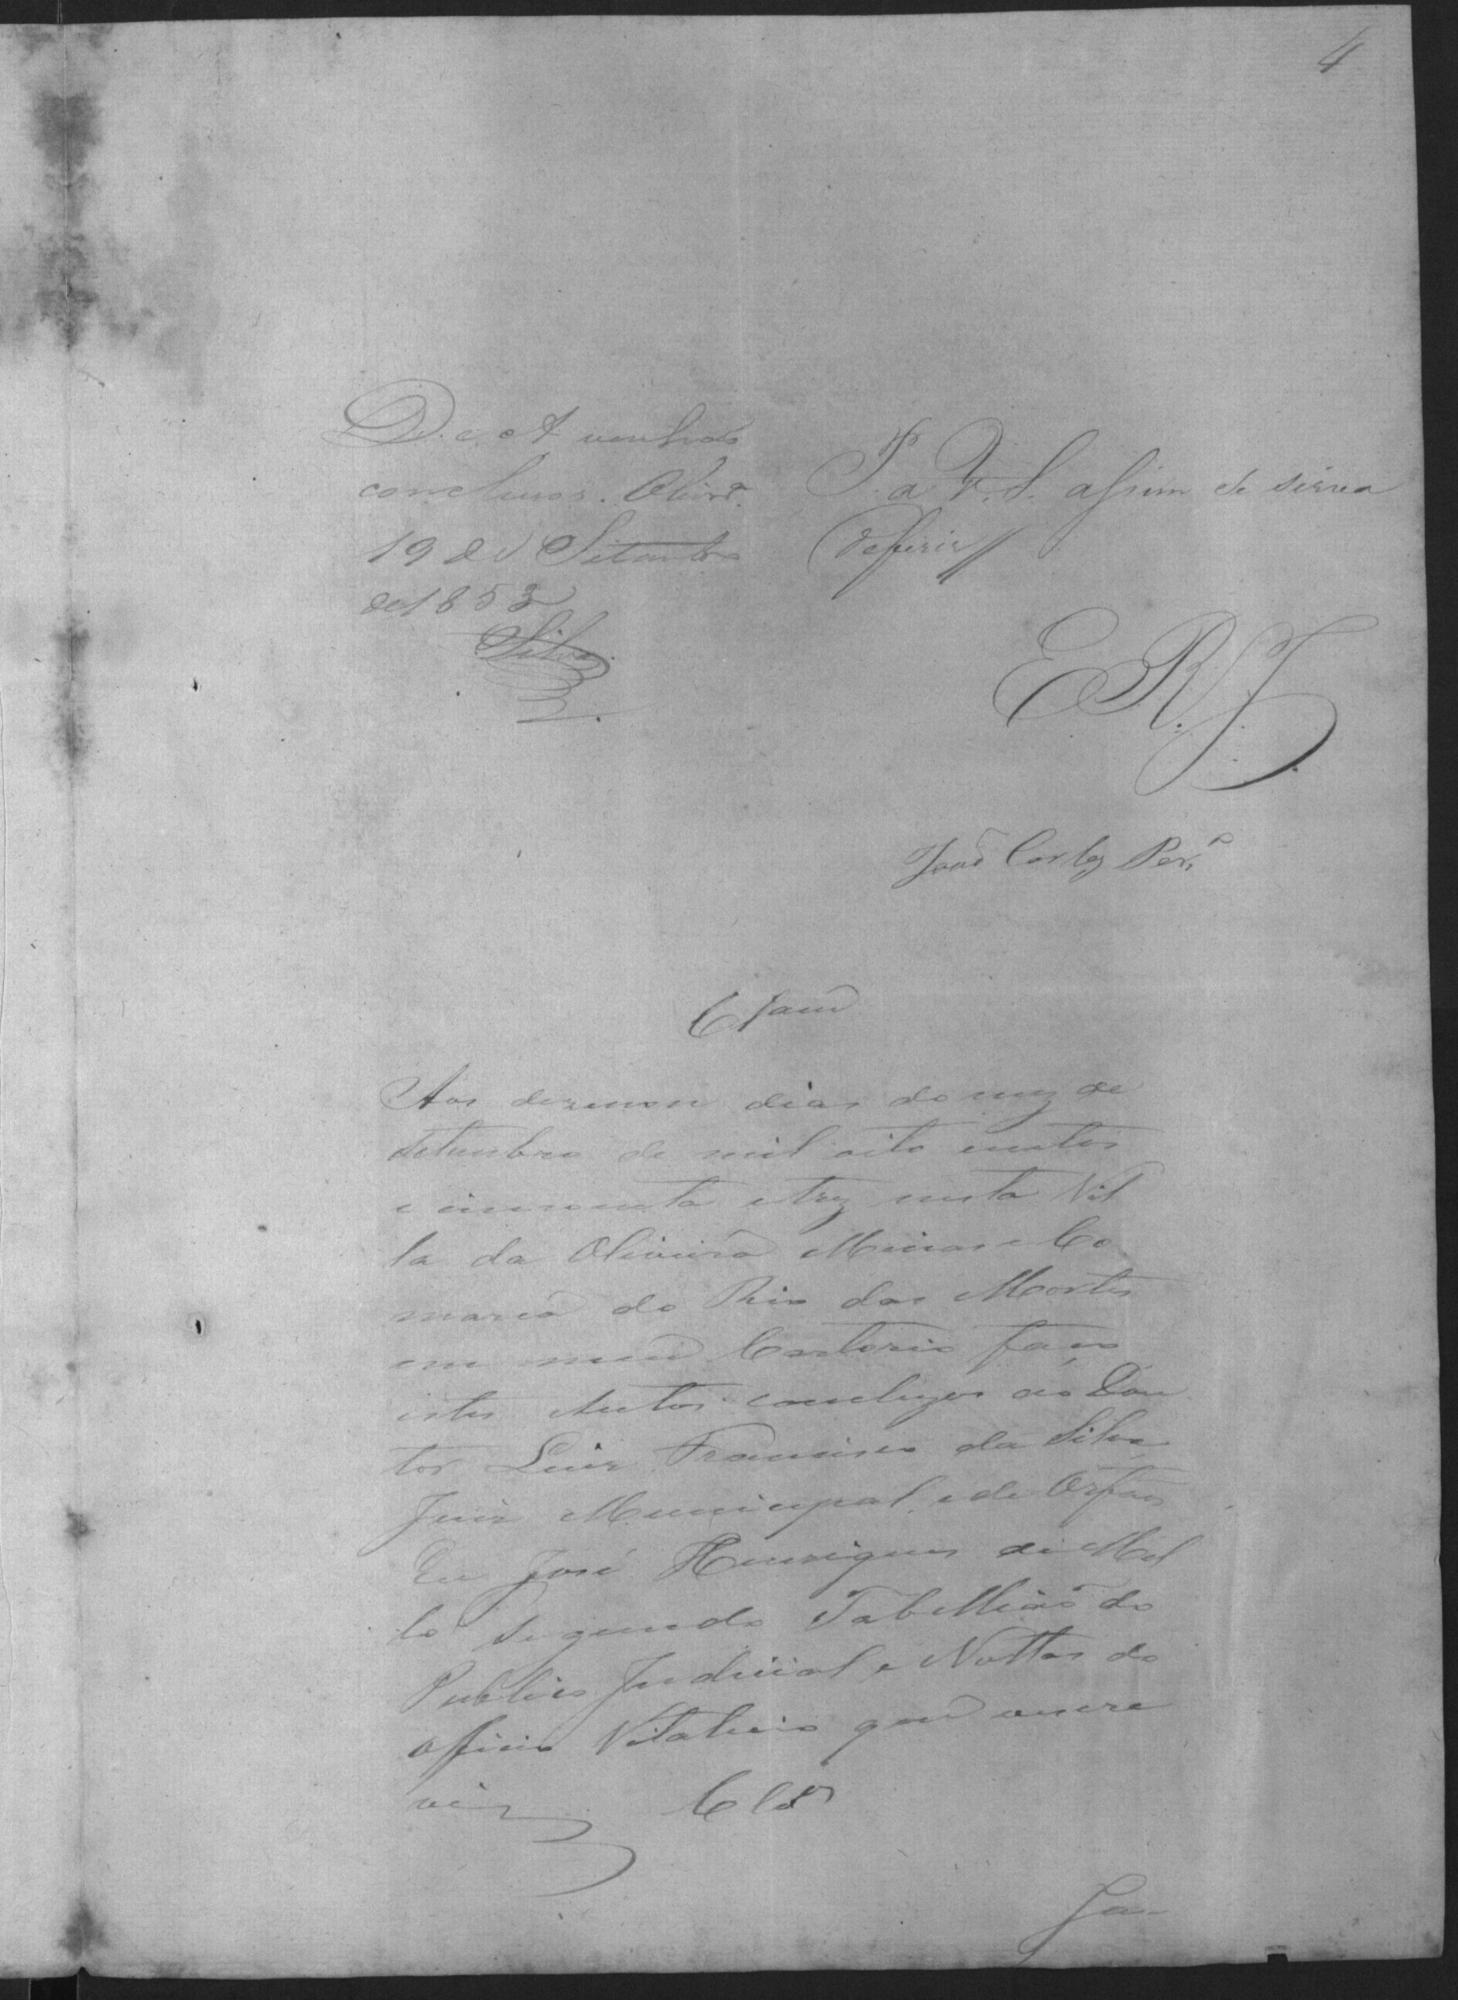 4
D. e A. venhão
conclusos. Olivrª.
19 de Setembro
de 1853
Silva
P. a V. S. assim o sirva
deferir
E. R. J.
João Cortez Perª
Clzam
Aos dezenove dias do mez de
Setembro de mil oito centos
e cincoenta e trez nesta Vil
la da Oliveira Minas e Co
marca do Rio das Mortes
em meu Cartorio faço
estes Autos conclusos ao Dou
tor Luiz Francisco da Silva
Juiz Municipal, e de Orfãos
Eu José Henriques de Mel
lo Segundo Tabellião do
Publico Judicial e Nottas do
officio Vitalicio que escre
vi
Clsos
Ja-